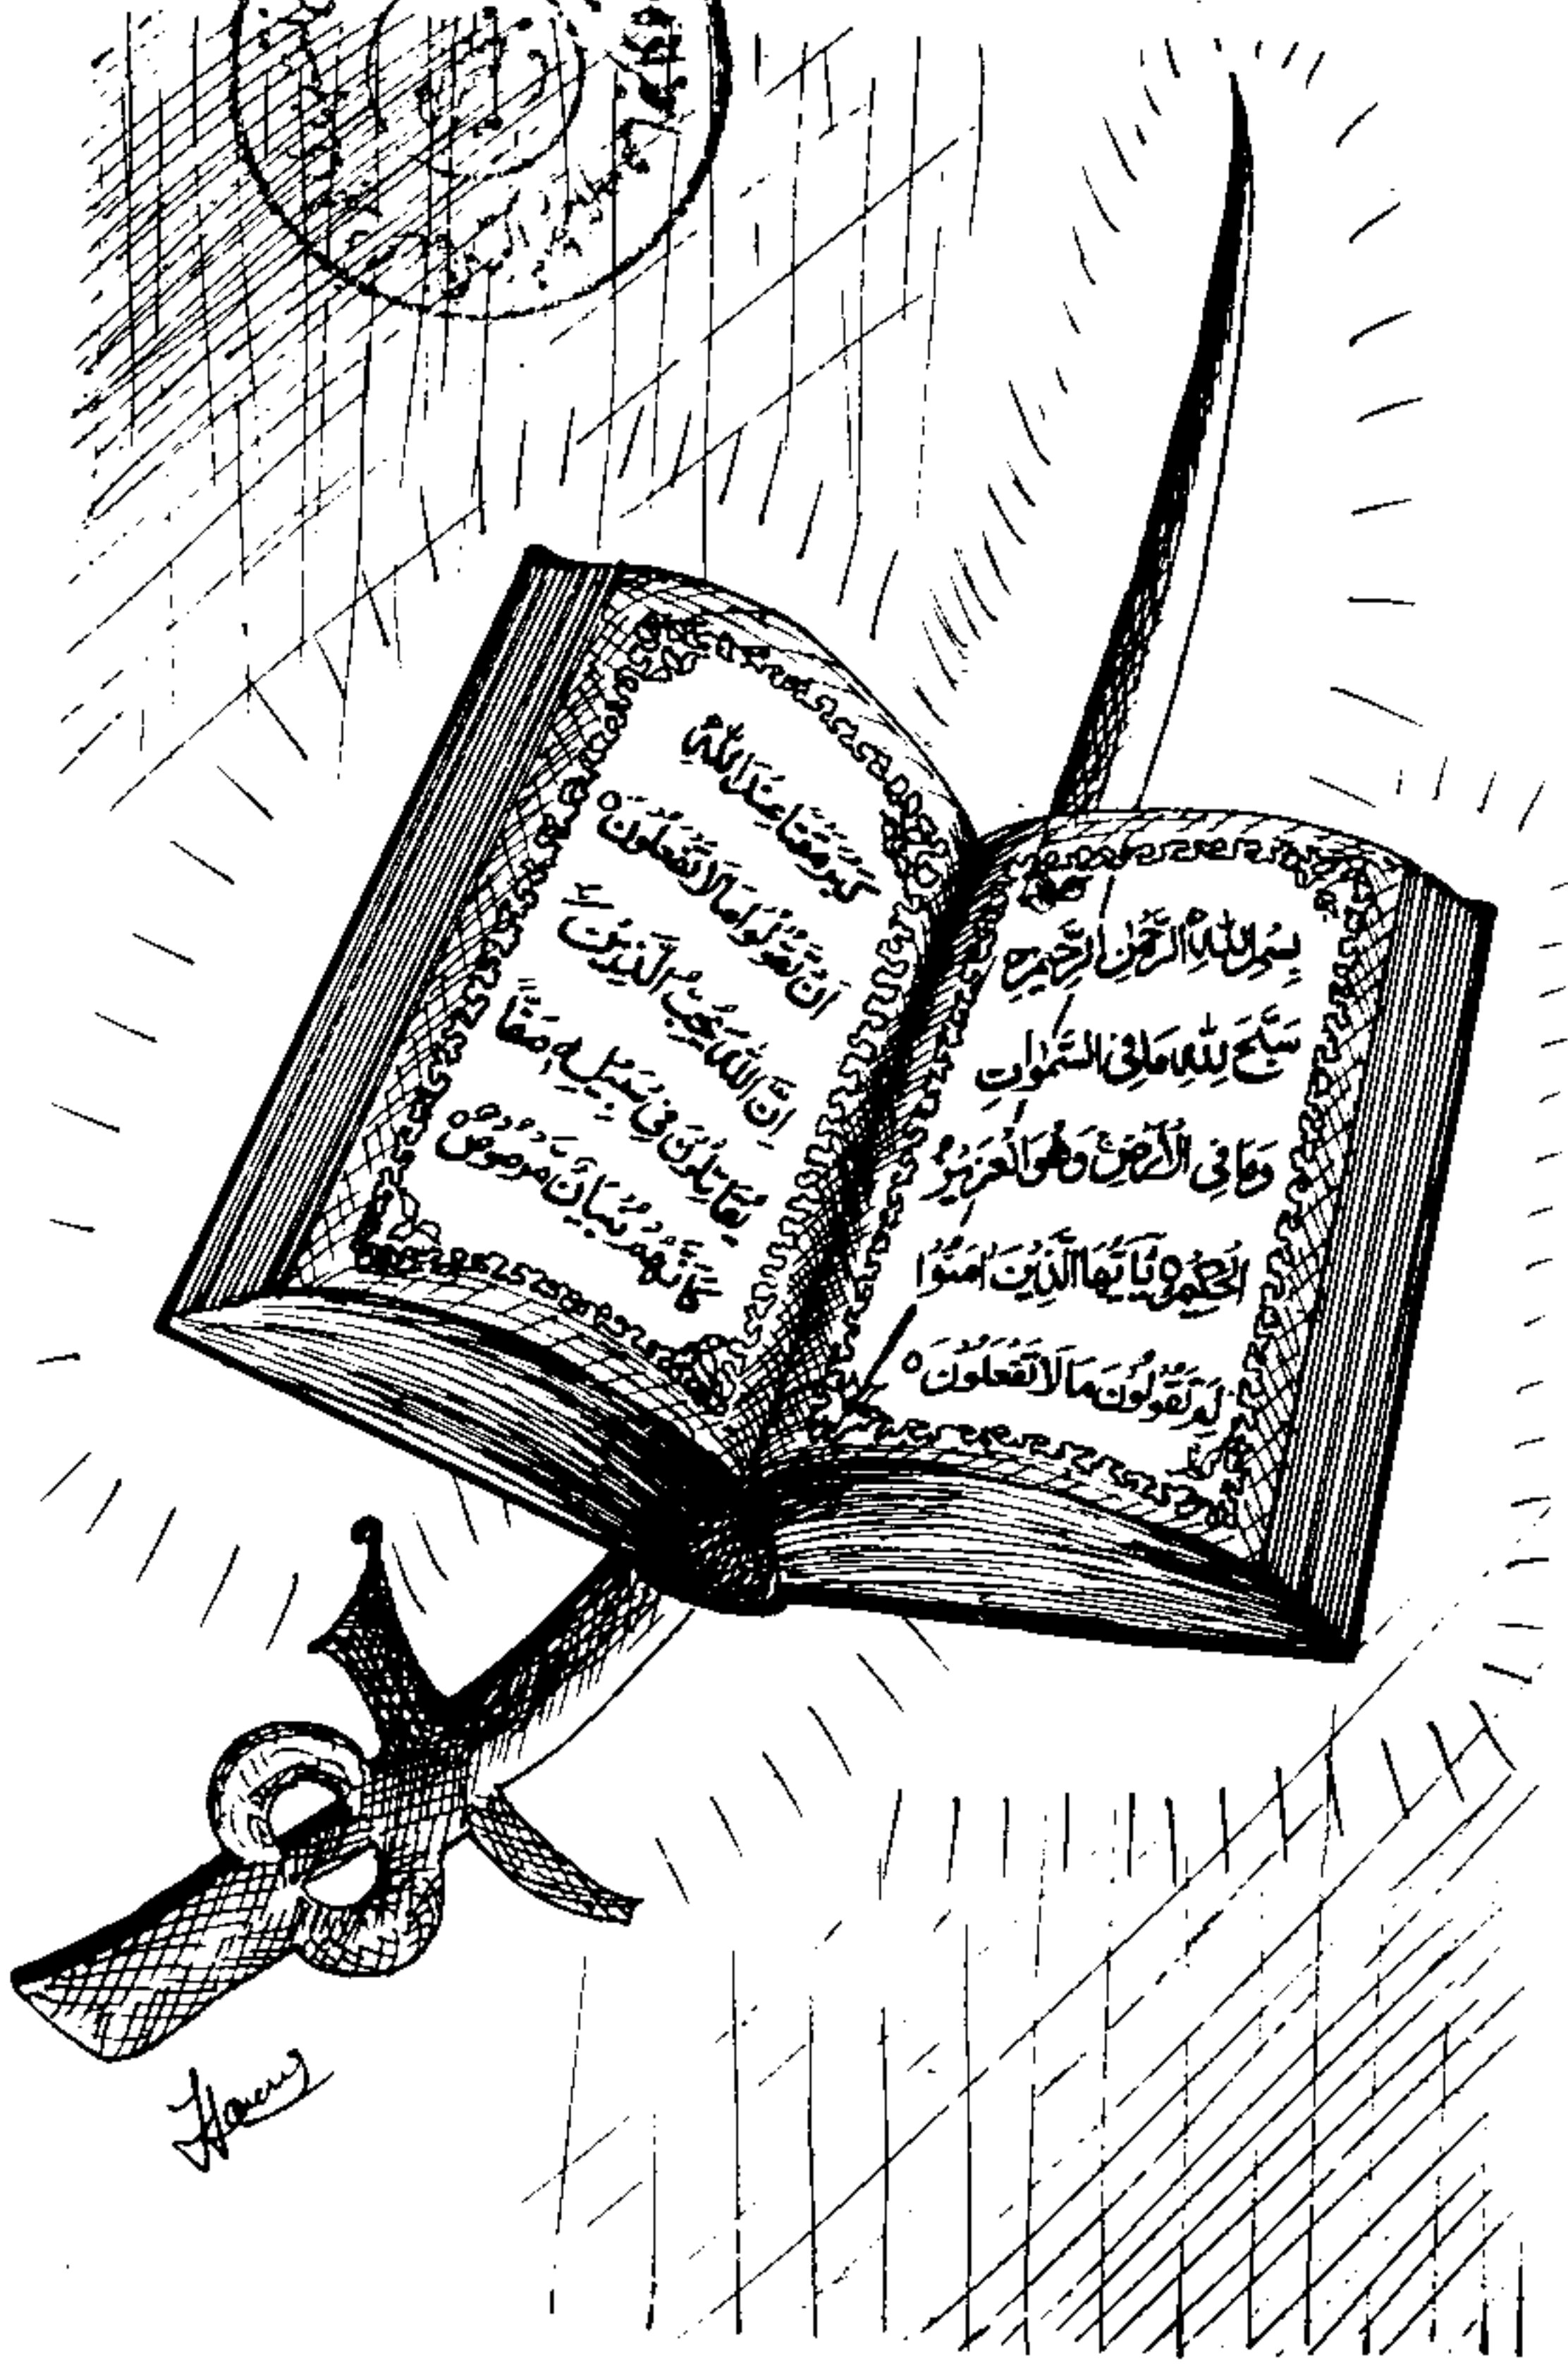 بِسْمِ اللّٰهِ الرَّحْمٰنِ الرَّحِيْمِ
سَبَّحَ لِلّٰهِ مَا فِی السَّمٰوٰتِ
وَمَا فِی الْاَرْضِ وَهُوَ الْعَزِیْزُ
الْحَكِیْمُ○ یٰۤاَیُّهَا الَّذِیْنَ اٰمَنُوْا
لِمَ تَقُوْلُوْنَ مَا لَا تَفْعَلُوْنَ○
كَبُرَ مَقْتًا عِنْدَ اللّٰهِ
اَنْ تَقُوْلُوْا مَا لَا تَفْعَلُوْنَ○
اِنَّ اللّٰهَ یُحِبُّ الَّذِیْنَ
یُقَاتِلُوْنَ فِیْ سَبِیْلِهٖ صَفًّا
كَاَنَّهُمْ بُنْیَانٌ مَّرْصُوْصٌ○